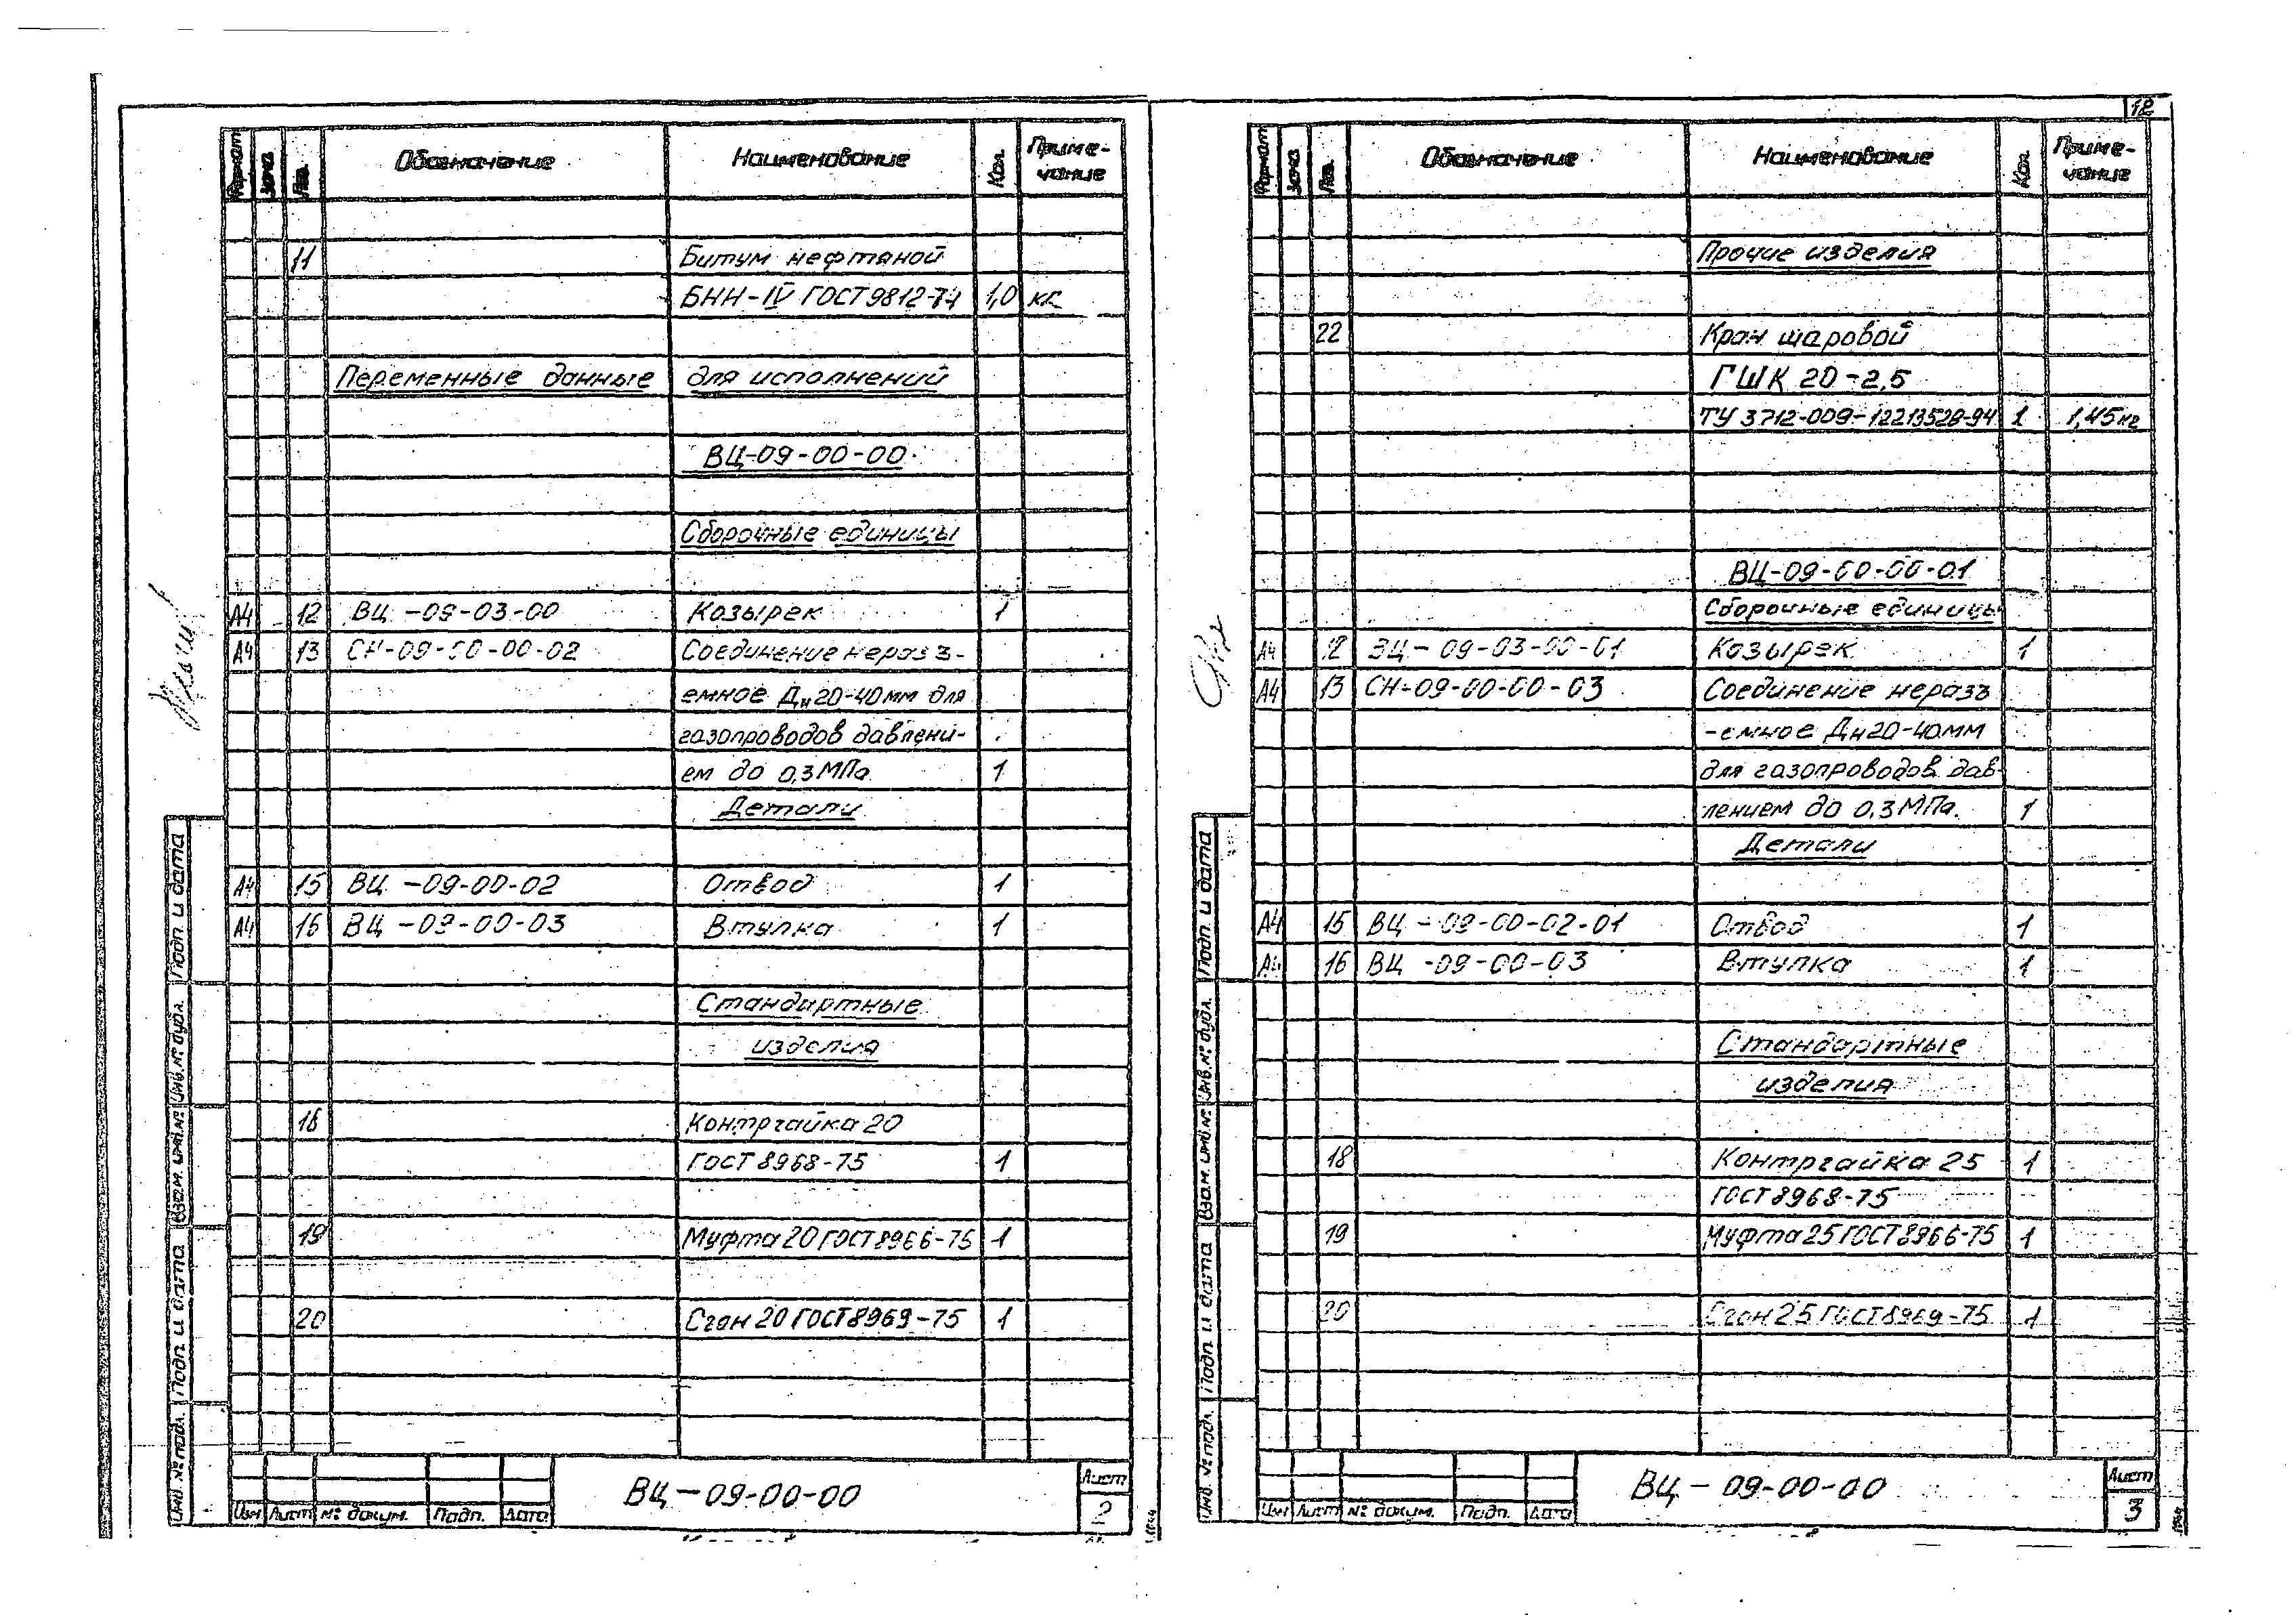 12
Формат Зона Поз. Обозначение Наименование Кол. Приме-
чание
11 Битум нефтяной
БНН-IV ГОСТ 9812-74 1,0 кг
Переменные данные для исполнений
ВЦ-09-00-00
Сборочные единицы
А4 12 ВЦ-09-03-00 Козырек 1
А4 13 СН-09-00-00-02 Соединение неразъ-
емное Дн 20-40мм для
газопроводов давлени-
ем до 0,3 МПа 1
Детали
А4 15 ВЦ-09-00-02 Отвод 1
А4 16 ВЦ-09-00-03 Втулка 1
Стандартные
изделия
18 Контргайка 20
ГОСТ 8968-75 1
19 Муфта 20 ГОСТ 8966-75 1
20 Сгон 20 ГОСТ 8969-75 1
Инв. № подл. Подп. и дата Взам. инв. № Инв. № дубл. Подп. и дата
Изм Лист № докум. Подп. Дата
ВЦ-09-00-00
Лист
2
Формат Зона Поз. Обозначение Наименование Кол. Приме-
чание
Прочие изделия
22 Кран шаровой
ГШК 20-2,5
ТУ 3712-009-12213528-94 1 1,45кг
ВЦ-09-00-00-01
Сборочные единицы
А4 12 ВЦ-09-03-00-01 Козырек 1
А4 13 СН-09-00-00-03 Соединение неразъ
-емное Дн 20-40мм
для газопроводов дав-
лением до 0,3 МПа. 1
Детали
А4 15 ВЦ-09-00-02-01 Отвод 1
А4 16 ВЦ-09-00-03 Втулка 1
Стандартные
изделия
18 Контргайка 25 1
ГОСТ 8968-75
19 Муфта 25 ГОСТ 8966-75 1
20 Сгон 25 ГОСТ 8969-75 1
Инв. № подл. Подп. и дата Взам. инв. № Инв. № дубл. Подп. и дата
Изм Лист № докум. Подп. Дата
ВЦ-09-00-00
Лист
3